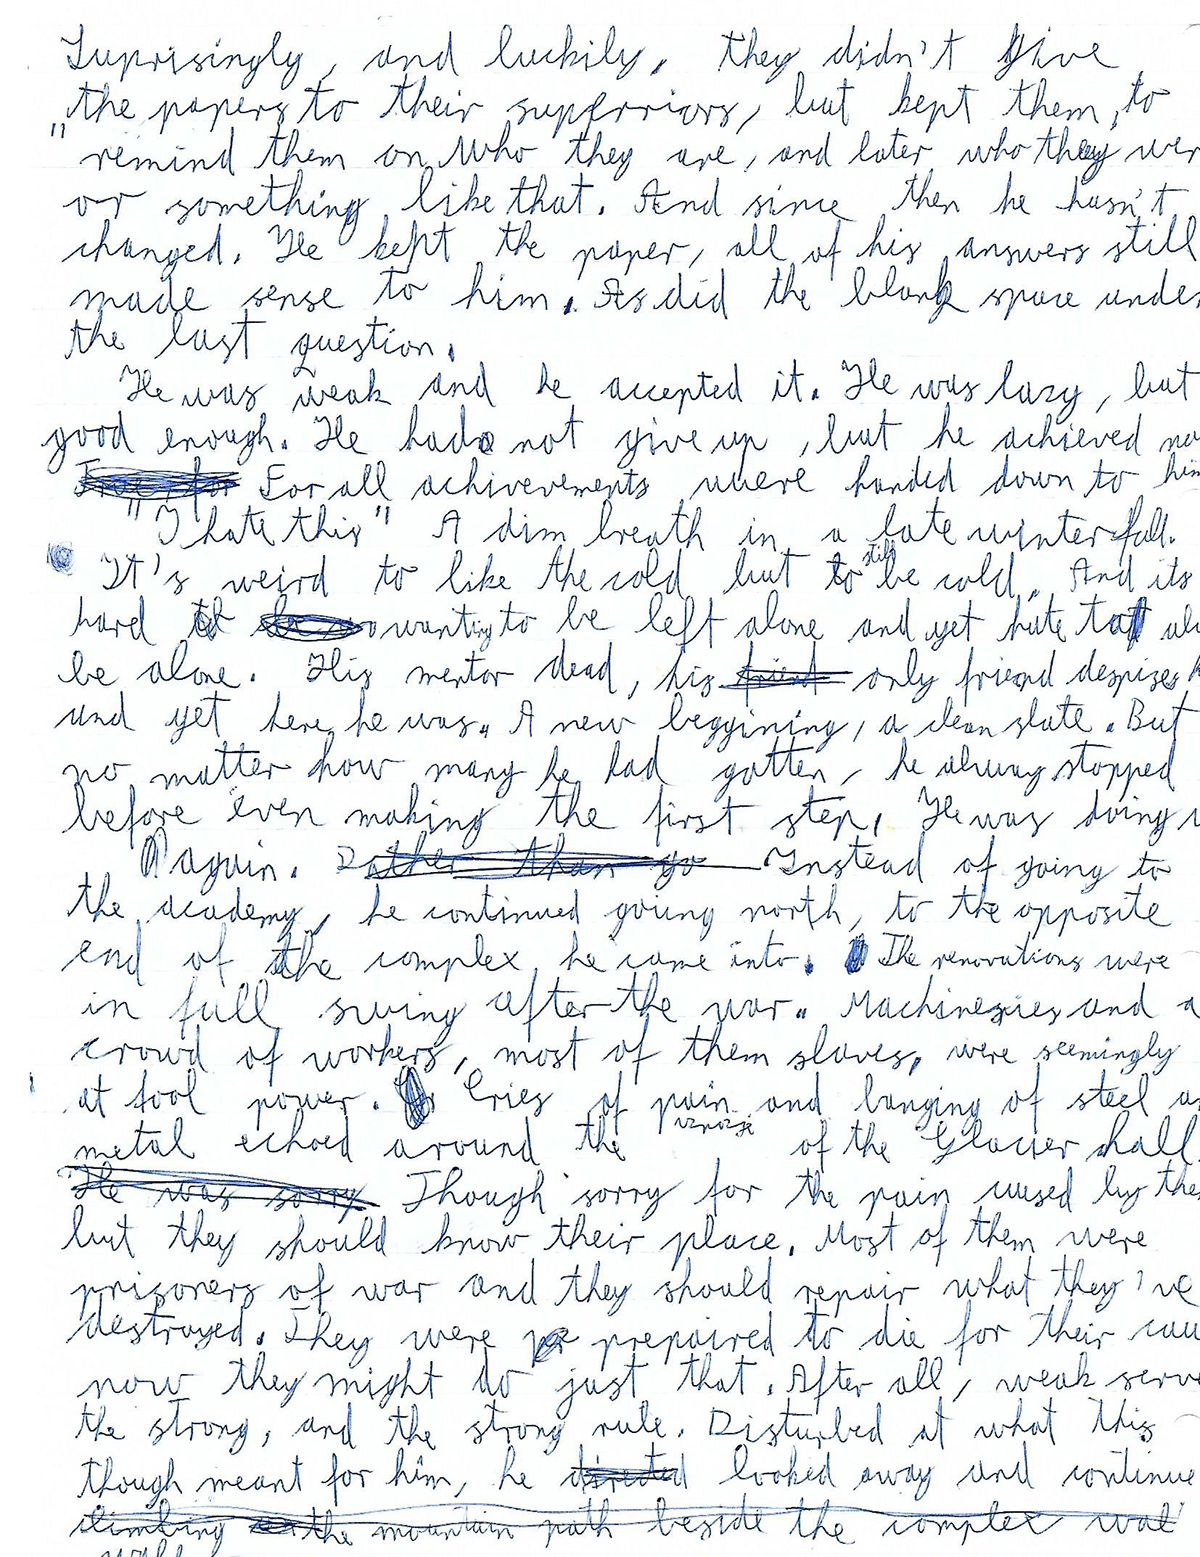 Suprisingly, and luckily, they didn't give
the papers to their superriors, but kept them, to
"remind them on who they are, and later who they wer
or something like that. And since then he hasn't
changed. He kept the paper, all of his answers still
made sense to him. As did the blank space unde
the last question.
He was weak and he accepted it. He was lazy, but
good enough. He had not give up, but he achieved no
For all achivements were handed down to him
"I hate this" A dim breath in a late winter fall.
It's weird to like the cold but to still be cold. And its
hard to wanting to be left alone and yet hate to al
be alone. His mentor dead, his friend only friend despises h
and yet here he was. A new beggining, a clean slate. But
no matter how many he had gotten, he alway stopped
before even making the first step. He was doing i
again. Rather than go Instead of going to
the academy, he continued going north, to the opposite
end of the complex he came into. The renovations were
in full swing after the war. Machineries and a
crowd of workers, most of them slaves, were seemingly
at fool power. Cries of pain and banging of steel a
metal echoed around the of the Glacier hall.
He was sorry Though sorry for the pain caused by the
but they should know their place. Most of them were
prisoners of war and they should repair what they've
destroyed. They were prepaired to die for their cau
now they might do just that. After all, weak serve
the strong, and the strong rule. Disturbed at what this
though meant for him, he directed looked away and continue
climbing the mountain path beside the complex wal
wall